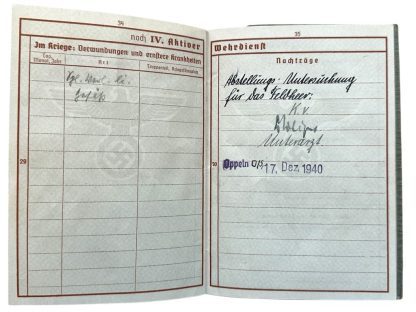 34
noch IV. Aktiver
Im Kriege: Verwundungen und ernstere Krankheiten
Tag, Monat, Jahr
Art
Truppenteil, Kriegslazarett
29
35
Wehrdienst
Nachträge
Abstellungs-Untersuchung
für das Feldheer:
K.v.
Unterarzt
30
Oppeln O/S 17. Dez. 1940